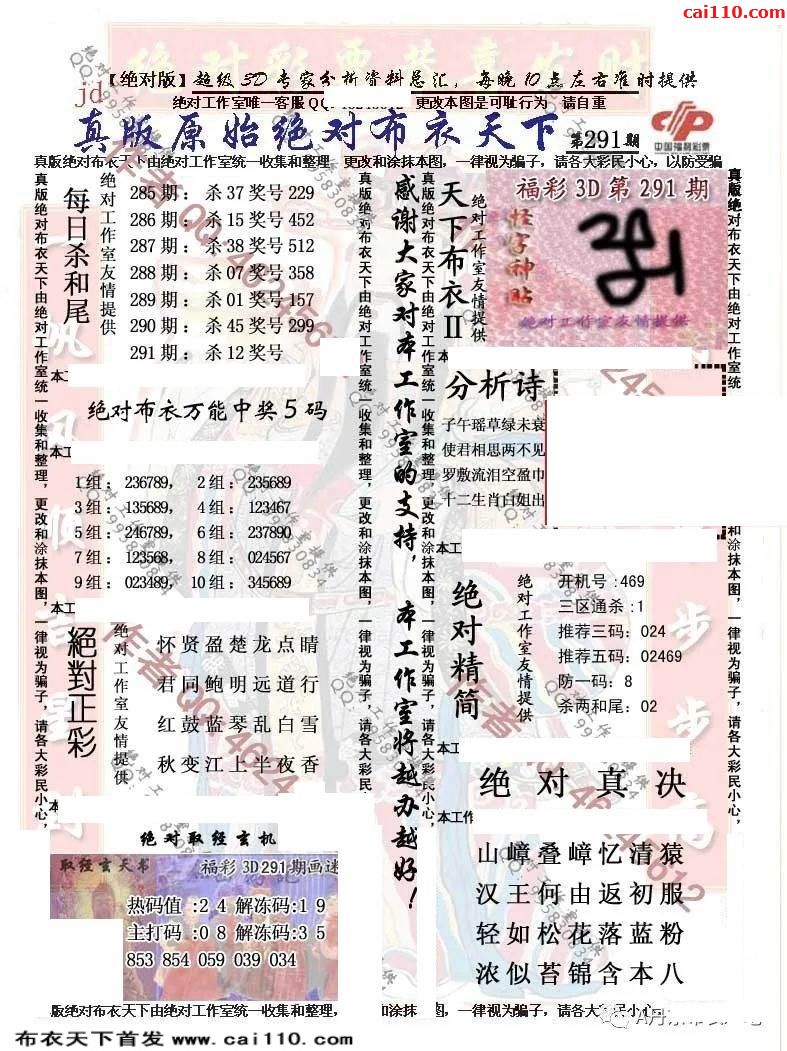 cai110.com
【绝对版】超级3D专家分析资料总汇，每晚10点左右准时提供
jd
绝对工作室唯一客服QQ 更改本图是可耻行为 请自重
真版原始绝对布衣天下 第291期
中国福利彩票
真版绝对布衣天下由绝对工作室统一收集和整理，更改和涂抹本图，一律视为骗子，请各大彩民小心，以防受骗
每日杀和尾
绝对工作室友情提供
285期：杀37奖号229
286期：杀15奖号452
287期：杀38奖号512
288期：杀07奖号358
289期：杀01奖号157
290期：杀45奖号299
291期：杀12奖号
绝对布衣万能中奖5码
1组：236789， 2组：235689
3组：135689， 4组：123467
5组：246789， 6组：237890
7组：123568， 8组：024567
9组：023489， 10组：345689
絕對正彩
绝对工作室友情提供
怀贤盈楚龙点睛
君同鲍明远道行
红鼓蓝琴乱白雪
秋变江上半夜香
绝对取经玄机
取经玄天书 福彩3D291期画迷
热码值：2 4 解冻码：1 9
主打码：0 8 解冻码：3 5
853 854 059 039 034
感谢大家对本工作室的支持，本工作室将越办越好！
天下布衣II
绝对工作室友情提供
福彩3D第291期
怪字神贴
绝对工作室友情提供
分析诗
子午瑶草绿未衰
使君相思两不见
罗敷流泪空盈巾
十二生肖白姐出
绝对精简
绝对工作室友情提供
开机号：469
三区通杀：1
推荐三码：024
推荐五码：02469
防一码：8
杀两和尾：02
绝对真决
山嶂叠嶂忆清猿
汉王何由返初服
轻如松花落蓝粉
浓似苔锦含本八
真版绝对布衣天下由绝对工作室统一收集和整理，更改和涂抹本图，一律视为骗子，请各大彩民小心，
真版绝对布衣天下由绝对工作室统一收集和整理，更改和涂抹本图，一律视为骗子，请各大彩民
真版绝对布衣天下由绝对工作室统一收集和整理，更改和涂抹本图，一律视为骗子，请各大彩民小心，
版绝对布衣天下由绝对工作室统一收集和整理， 和涂抹本图，一律视为骗子，请各大彩民小心
布衣天下首发 www.cai110.com